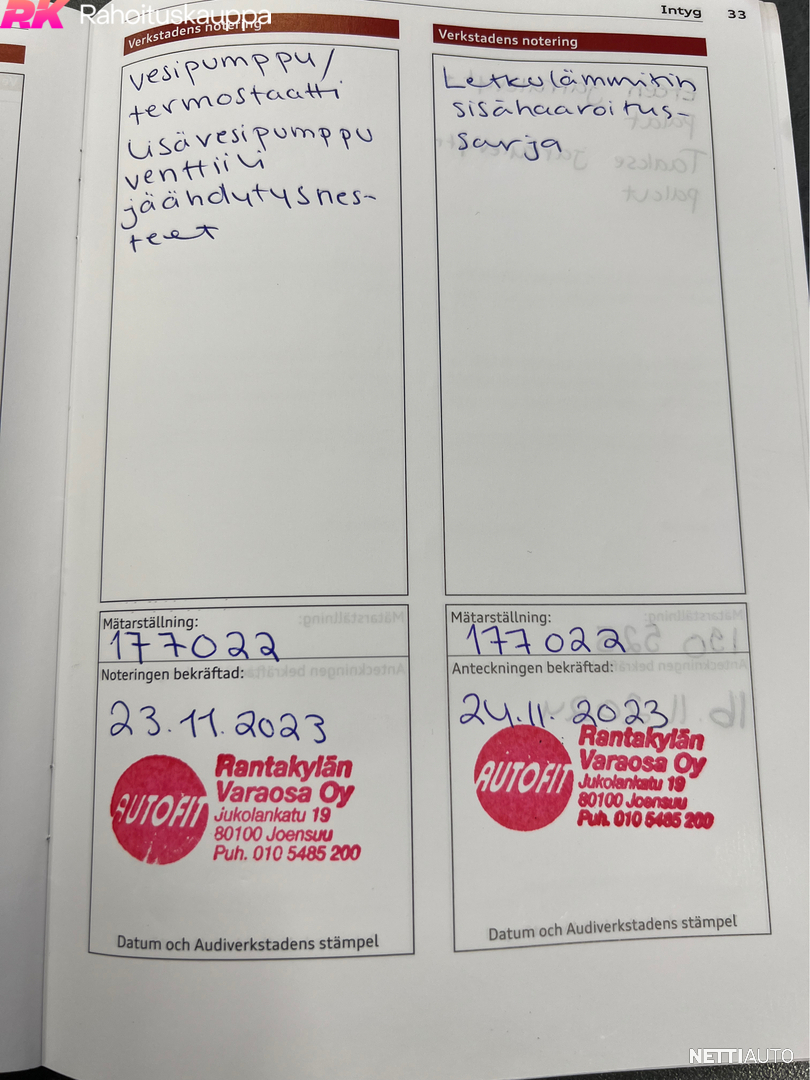 RK Rahoituskauppa
Intyg 33
Verkstadens notering
vesipumppu/
termostaatti
Lisävesipumppu
venttiili
jäähdytysnes-
teet
Verkstadens notering
Letkulämmitin
sisähaaroitus-
sarja
Mätarställning:
177022
Noteringen bekräftad:
23.11.2023
AUTOFIT
Rantakylän
Varaosa Oy
Jukolankatu 19
80100 Joensuu
Puh. 010 5485 200
Datum och Audiverkstadens stämpel
Mätarställning:
177022
Anteckningen bekräftad:
24.11.2023
AUTOFIT
Rantakylän
Varaosa Oy
Jukolankatu 19
80100 Joensuu
Puh. 010 5485 200
Datum och Audiverkstadens stämpel
NETTIAUTO